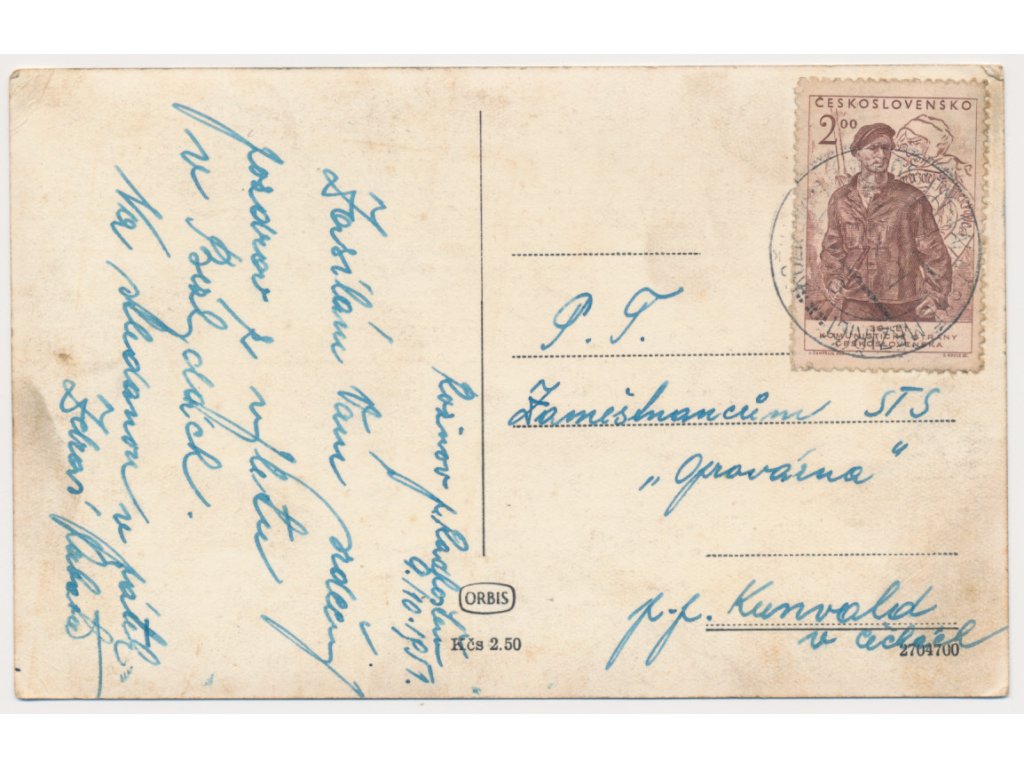 p. Radhoštěm
9./10. 1951.
Zasílám Vám srdečný
pozdrav z výletu
v Beskydách.
Na shledanou v pátek
Zdraví
ČESKOSLOVENSKO
2 00
30 LET
KOMUNISTICKÉ STRANY
ČESKOSLOVENSKA
P. T.
Zaměstnancům STS
„Opravárna"
p. p. Kunvald
v Čechách
ORBIS
Kčs 2.50
2704700